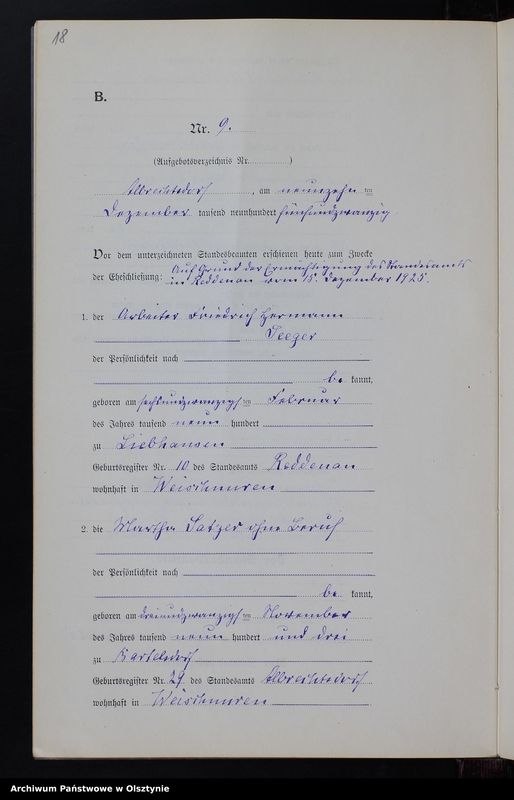 18
B.
Nr. 9.
(Aufgebotsverzeichnis Nr. )
Albrechtsdorf, am neunzehn ten
Dezember tausend neunhundert fünfundzwanzig
Vor dem unterzeichneten Standesbeamten erschienen heute zum Zwecke
der Eheschließung: Auf Grund der Ermächtigung des Standesamts
in Reddenau vom 15. Dezember 1925.
1. der Arbeiter Friedrich Hermann
Seeger
der Persönlichkeit nach
be kannt,
geboren am sechsundzwanzigs ten Februar
des Jahres tausend neun hundert
zu Liebhausen
Geburtsregister Nr. 10 des Standesamts Reddenau
wohnhaft in Weischnuren
2. die Martha Satzer ohne Beruf
der Persönlichkeit nach
be kannt,
geboren am dreiundzwanzigs ten November
des Jahres tausend neun hundert und drei
zu Bartelsdorf
Geburtsregister Nr. 29 des Standesamts Albrechtsdorf
wohnhaft in Weischnuren
Archiwum Państwowe w Olsztynie